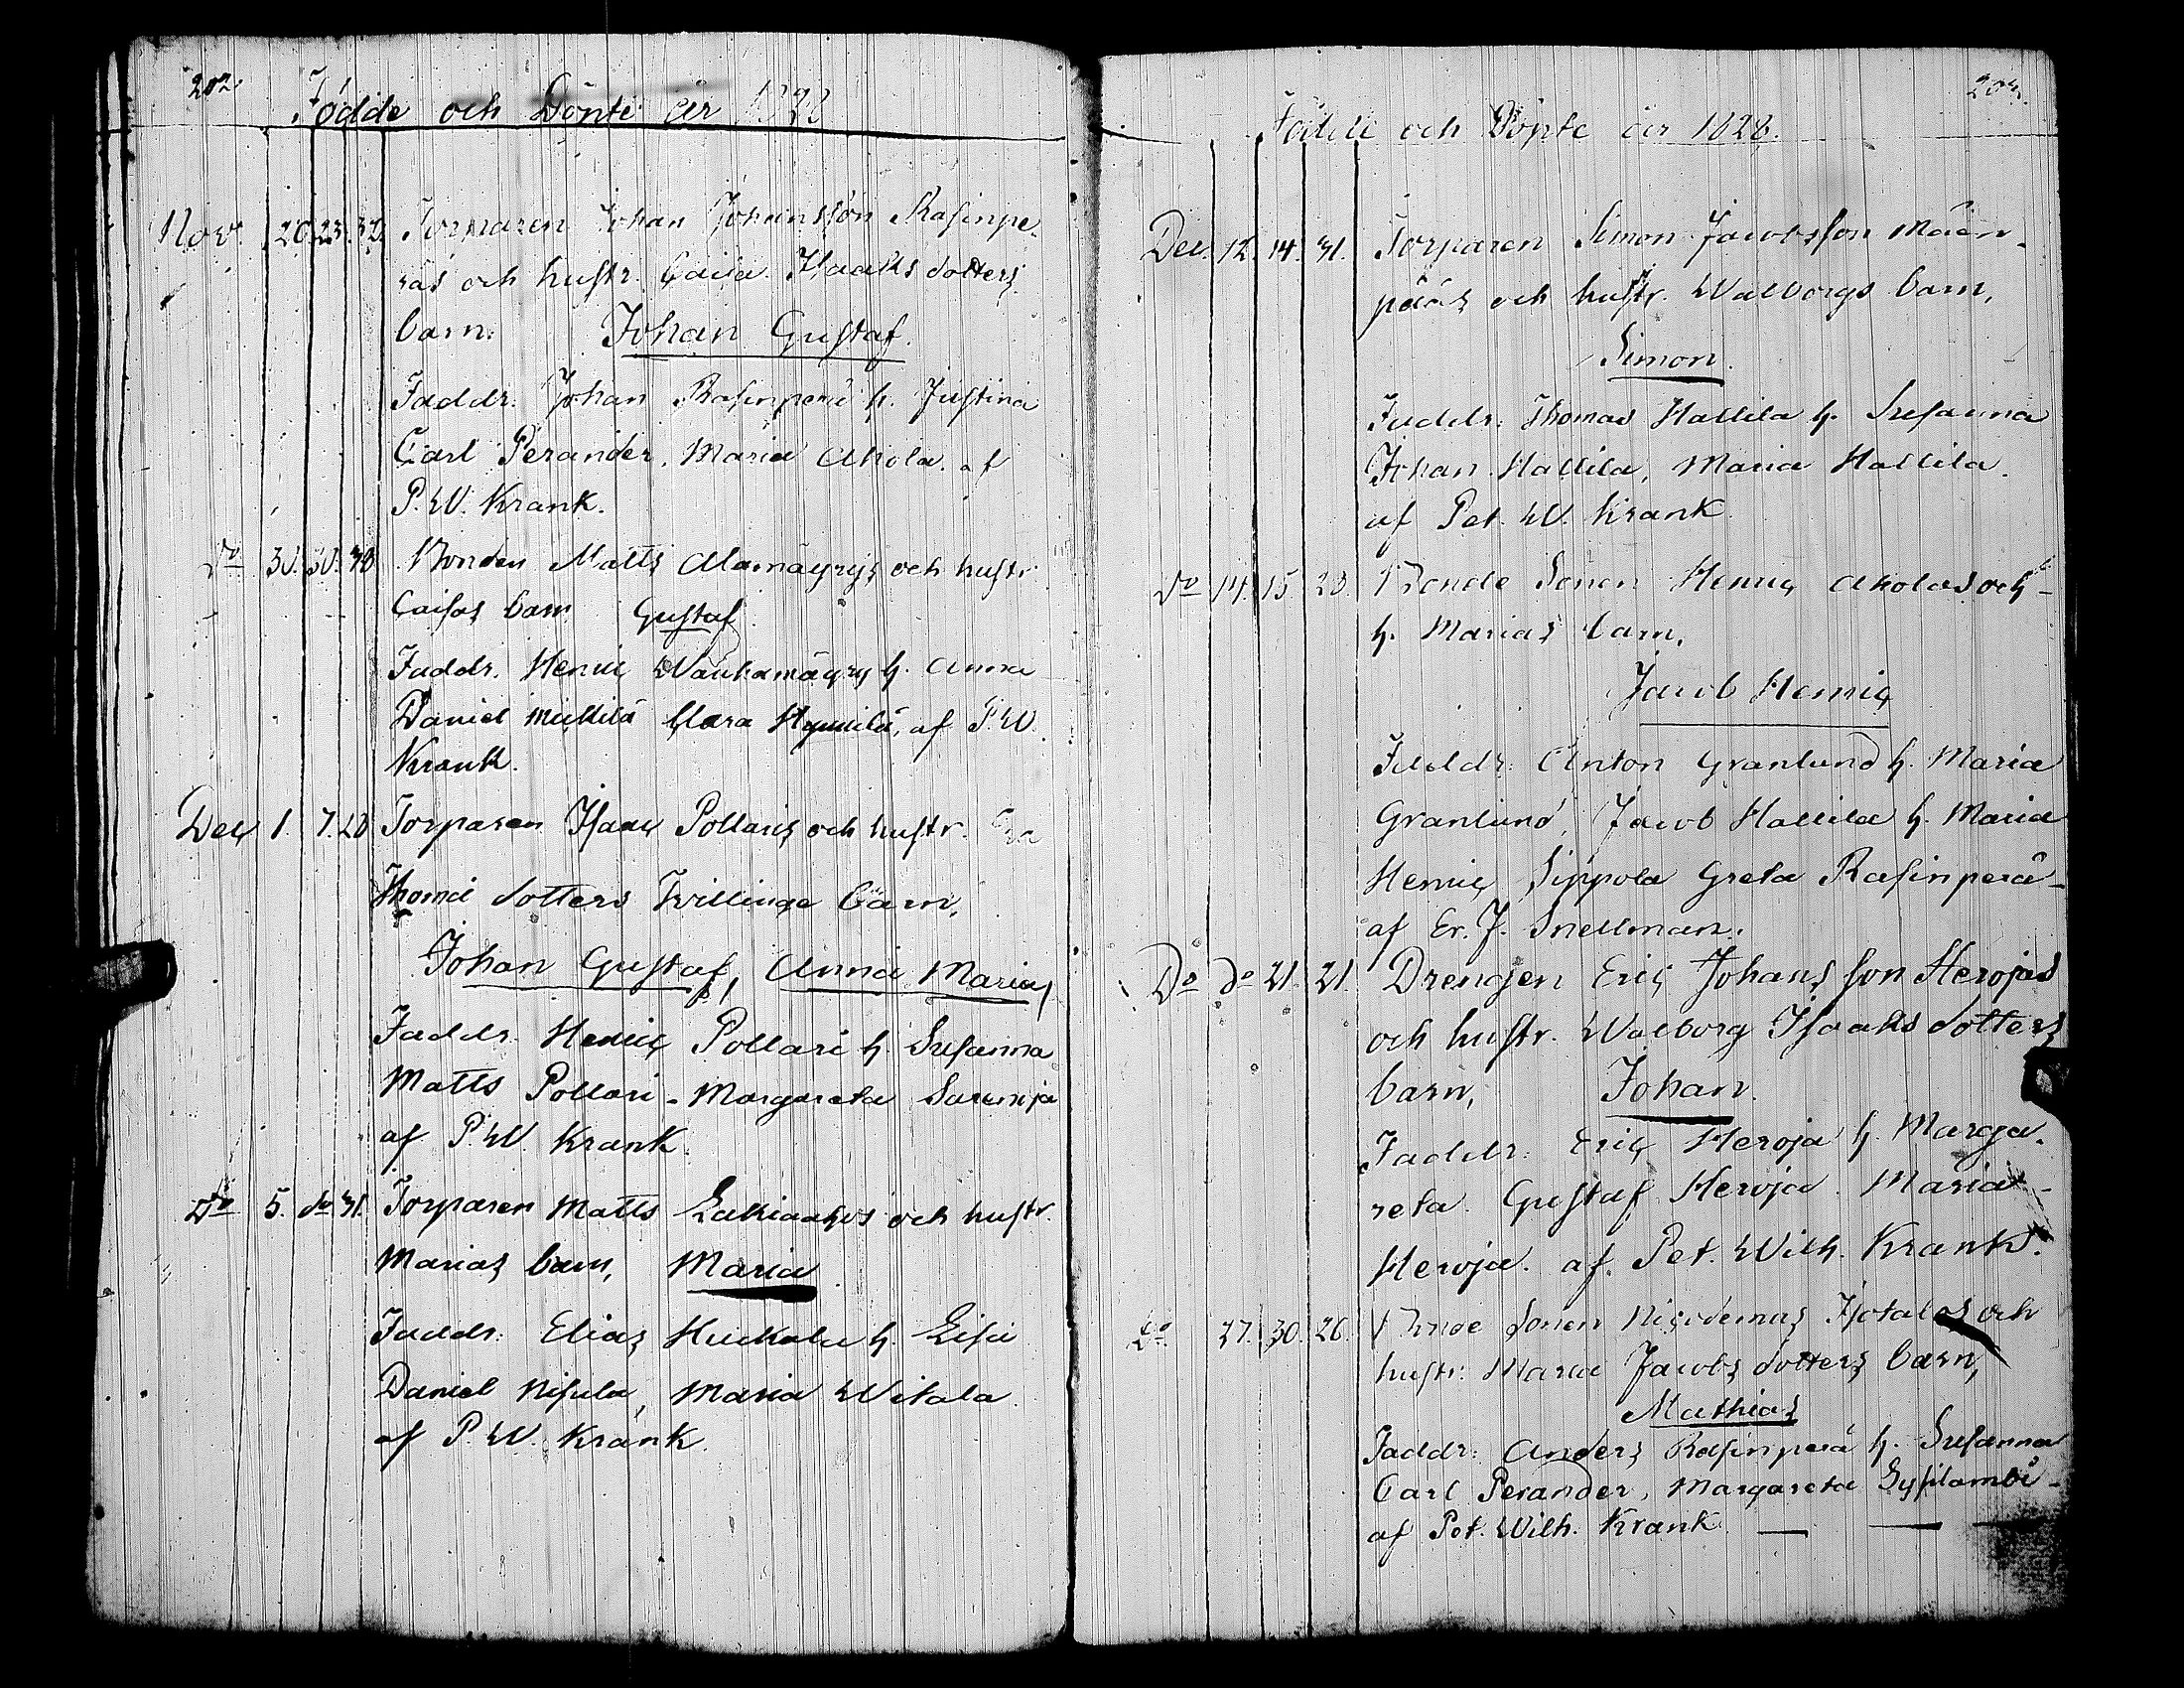 202.
Födde och Döpte år 1828
Nov. 20. 23. 32. Torparen Johan Johansson Rasinpe
räs och hustr. Caisa Isaaks dotters
barn: Johan Gustaf.
Faddr. Johan Rasinperä h. Justina
Carl Perander, Maria Ahola. af
P. W. Krank.
Do 30. 30. 40 Bonden Matts Alamäyrys och hustr
Caisas barn Gustaf
Faddr. Henric Wanhamäyry h. Anna
Daniel Mickilä Clara Hynnilä, af P. W.
Krank.
Dec 1. 7. 28 Torparen Isaac Pollaris och hustr.
Thomæ dotters Tvillinge barn,
Johan Gustaf, Anna Maria,
Faddr. Henric Pollari h. Susanna
Matts Pollari - Margareta
af P. W. Krank.
Do 5. do 31. Torparen Matts och hustr.
Marias barn, Maria
Faddr: Elias Huckala h. Lisa
Daniel Nisula, Maria Witala.
af P. W. Krank.
Födde och Döpte år 1828.
Dec. 12. 14. 31. Torparen Simon Jacobsson Mäen-
pääs och hustr. Walborgs barn,
Simon.
Faddr: Thomas Hallila h. Susanna
Johan Hallila, Maria Hallila.
af Pet. W. Krank
Do 14. 15. 23. Bonde Sonen Henric Aholas och
h. Marias barn,
Jacob Henric
Faddr: Anton Granlund h. Maria
Granlund, Jacob Hallila h. Maria
Henric Sippola Greta Rasinperä -
af Er. J. Snellman.
Do do 21. 21. Drengen Eric Johans son Herojas
och hustr. Walborg Isaaks dotters
barn, Johan.
Faddr: Eric Heroja h. Marga.
reta. Gustaf Heroja. Maria -
Heroja. af. Pet. Wilh. Krank.
Do 27. 30. 26. Bonde Sonen Nicodemus Isotalos och
hustr: Maria Jacobs dotters barn,
Mathias
Faddr: Anders Rasinperä h. Susanna
Carl Perander, Margareta Sysilambi -
af Pet. Wilh. Krank. — — —